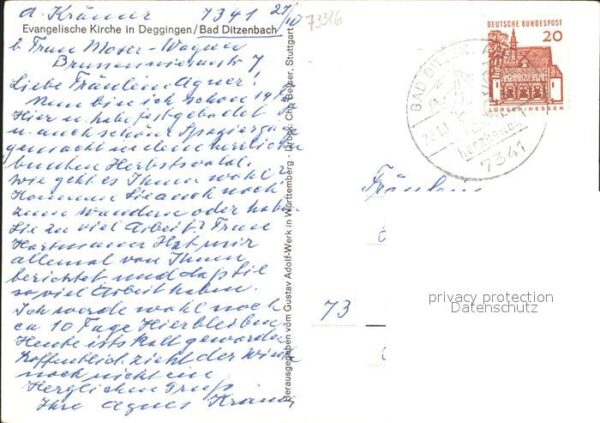 A. Krämer 7341 27/10
73326
Evangelische Kirche in Deggingen/Bad Ditzenbach
b. Frau Moser-Wagner
Brunnenwiesenstr 7,
Liebe Fräulein Agner!
Nun bin ich schon 14 Tg
Hier u. habe fest gebadet
u. auch schöne Spaziergänge
gemacht in dem herrlichen
bunten Herbstwald.
wie geht es Ihnen wohl?
Kommen Sie auch noch
zum wandern oder haben
Sie zu viel Arbeit? Frau
Hartmann Hat mir
allemal von Ihnen
berichtet und daß Sie
so viel Arbeit haben.
Ich werde wohl noch
ca 10 Tage Hierbleiben
Heute ists kalt geworden
Hoffentlich zieht der Winter
noch nicht ein
Herzlichen Gruß
Ihre Agnes Krämer
Herausgegeben vom Gustav Adolf-Werk in Württemberg · Druck: Chr. Belser, Stuttgart
DEUTSCHE BUNDESPOST
20
LORSCH/HESSEN
BAD DITZENBACH
7341
Fräulein
73
privacy protection
Datenschutz